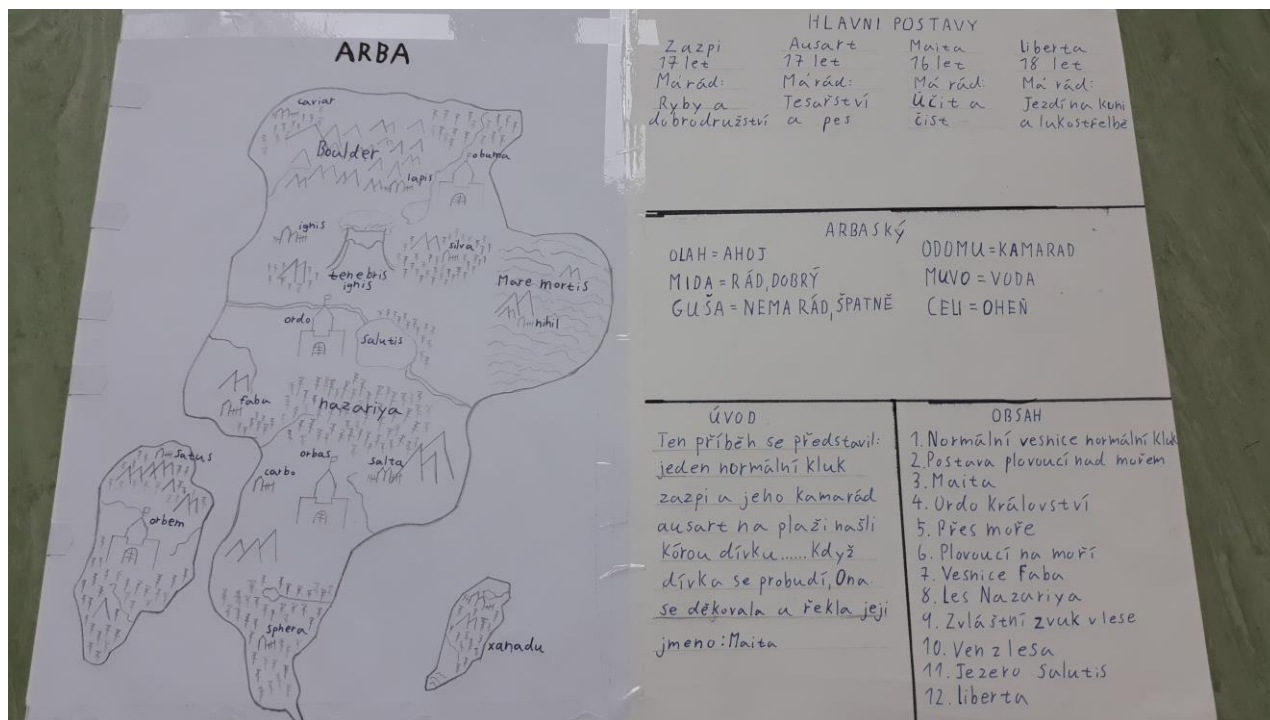 ARBA
caviar
Boulder
obuma
lapis
ignis
silva
tenebris
ignis
Mare mortis
nihil
ordo
salutis
faba
nazariya
satus
carbo
orbas
salta
orbem
sphera
xanadu
HLAVNI POSTAVY
Zazpi
17 let
Má rád:
Ryby a
dobrodružství
Ausart
17 let
Má rád:
Tesařství
a pes
Maita
16 let
Má rád:
Účit a
číst
liberta
18 let
Má rád:
Jezdí na koni
a lukostřelbě
ARBASKÝ
OLAH = AHOJ
MIDA = RÁD, DOBRÝ
GUŠA = NEMA RÁD, ŠPATNĚ
ODOMU = KAMARAD
MUVO = VODA
CELI = OHEŇ
ÚVOD
Ten příběh se představil:
jeden normální kluk
zazpi a jeho kamarád
ausart na plaži našli
kórou dívku...... Když
dívka se probudí, Ona
se děkovala a řekla její
jmeno: Maita
OBSAH
1. Normální vesnice normální kluk
2. Postava plovoucí nad mořem
3. Maita
4. Ordo Království
5. Přes moře
6. Plovoucí na moří
7. Vesnice Faba
8. Les Nazariya
9. Zvláštní zvuk v lese
10. Ven z lesa
11. Jezero Salutis
12. liberta